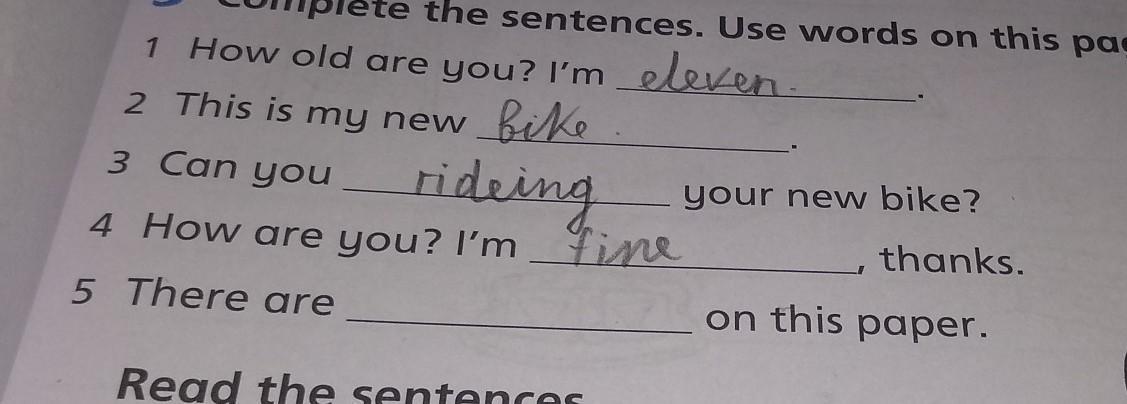 Complete the sentences. Use words on this pa
1 How old are you? I'm eleven.
2 This is my new Bike.
3 Can you rideing your new bike?
4 How are you? I'm fine, thanks.
5 There are ______ on this paper.
Read the sentences